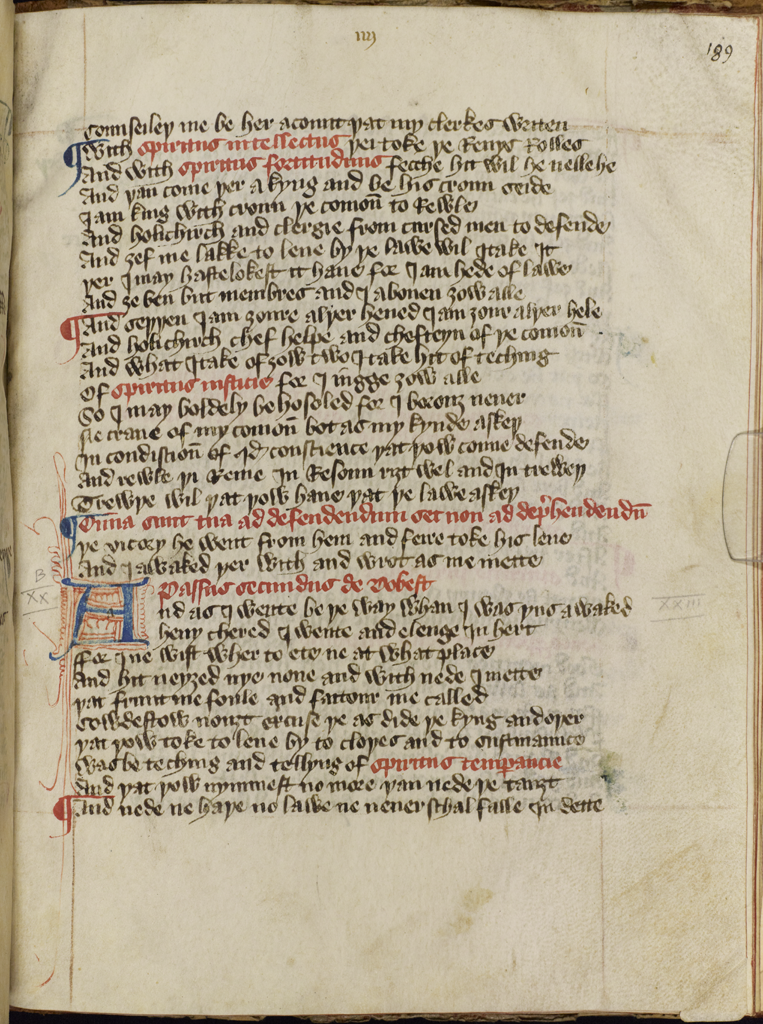 iiij
189
Counseiley me be her acount þat my clerkes writen
With spiritus intellectus þei toke þe Renys Rolles
And with spiritus fortitudinis fecche hit wil he nelle he
And þan come þer a kyng and be his croun seide
I am king with croun þe comoun to Rewle
And holichirch and clergie from cursed men to defende
And ȝef me lakke to leue by þe lawe wil I take it
þer I may hastelokest it haue for I am hede of lawe
And ȝe ben but membres and I abouen ȝow alle
And seþþen I am ȝoure alþer heued I am ȝoure alþer hele
And holichirch chef helpe and chefteyn of þe comoun
And what I take of ȝow two I take hit of teching
Of spiritus iusticie for I iugge ȝow alle
So I may boldely be hosoled for I borowȝ neuer
Ne craue of my comoun bot as my kynde askeþ
In condiscioun of qd conscience þat þow conne defende
And rewle þi Reme In Resoun riȝt wel and In treweþ
Trewþe wil þat þow haue þat þe lawe askeþ
Omnia sunt tua ad defendendum set non ad deprehendendum
þe vicory he went from hem and feire toke his leue
And I awaked þer with and wrot as me mette
B
XX
Passus secundus de Dobest
And as I wente be þe way whan I was þus awaked
XXIII
heuy chered I wente and elenge In hert
for I ne wist wher to ete ne at what place
And hit neyȝed nye none and with nede I mette
þat frunt me foule and faitour me called
Cowdestow nouȝt excuse þe as dide þe kyng and oþer
þat þow toke to leue by to cloþes and to sustinaunce
was be teching and tellyng of spiritus temperancie
And þat þow nymmest no more þan nede þe tauȝt
And nede ne haþe no lawe ne neuer schal falle In dette